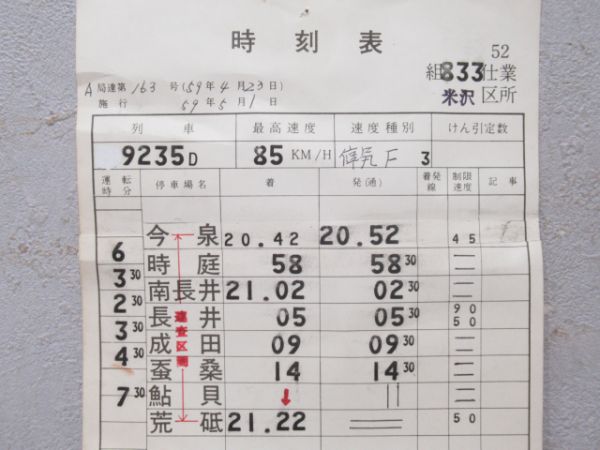 時刻表
52
組833仕業
米沢区所
A局達第163号(59年4月23日)
施行 59年5月1日
列車 最高速度 速度種別 けん引定数
9235D 85KM/H 停気F3
運転時分 停車場名 着 発(通) 着発線 制限速度 記事
今泉 20.42 20.52 45
6 時庭 58 58 30 =
3 30 南長井 21.02 02 30 =
2 30 長井 05 05 30 90 50
3 30 成田 09 09 30 =
4 30 蚕桑 14 14 30 =
鮎貝 ↓ || =
7 30 荒砥 21.22 = 50
連査区間